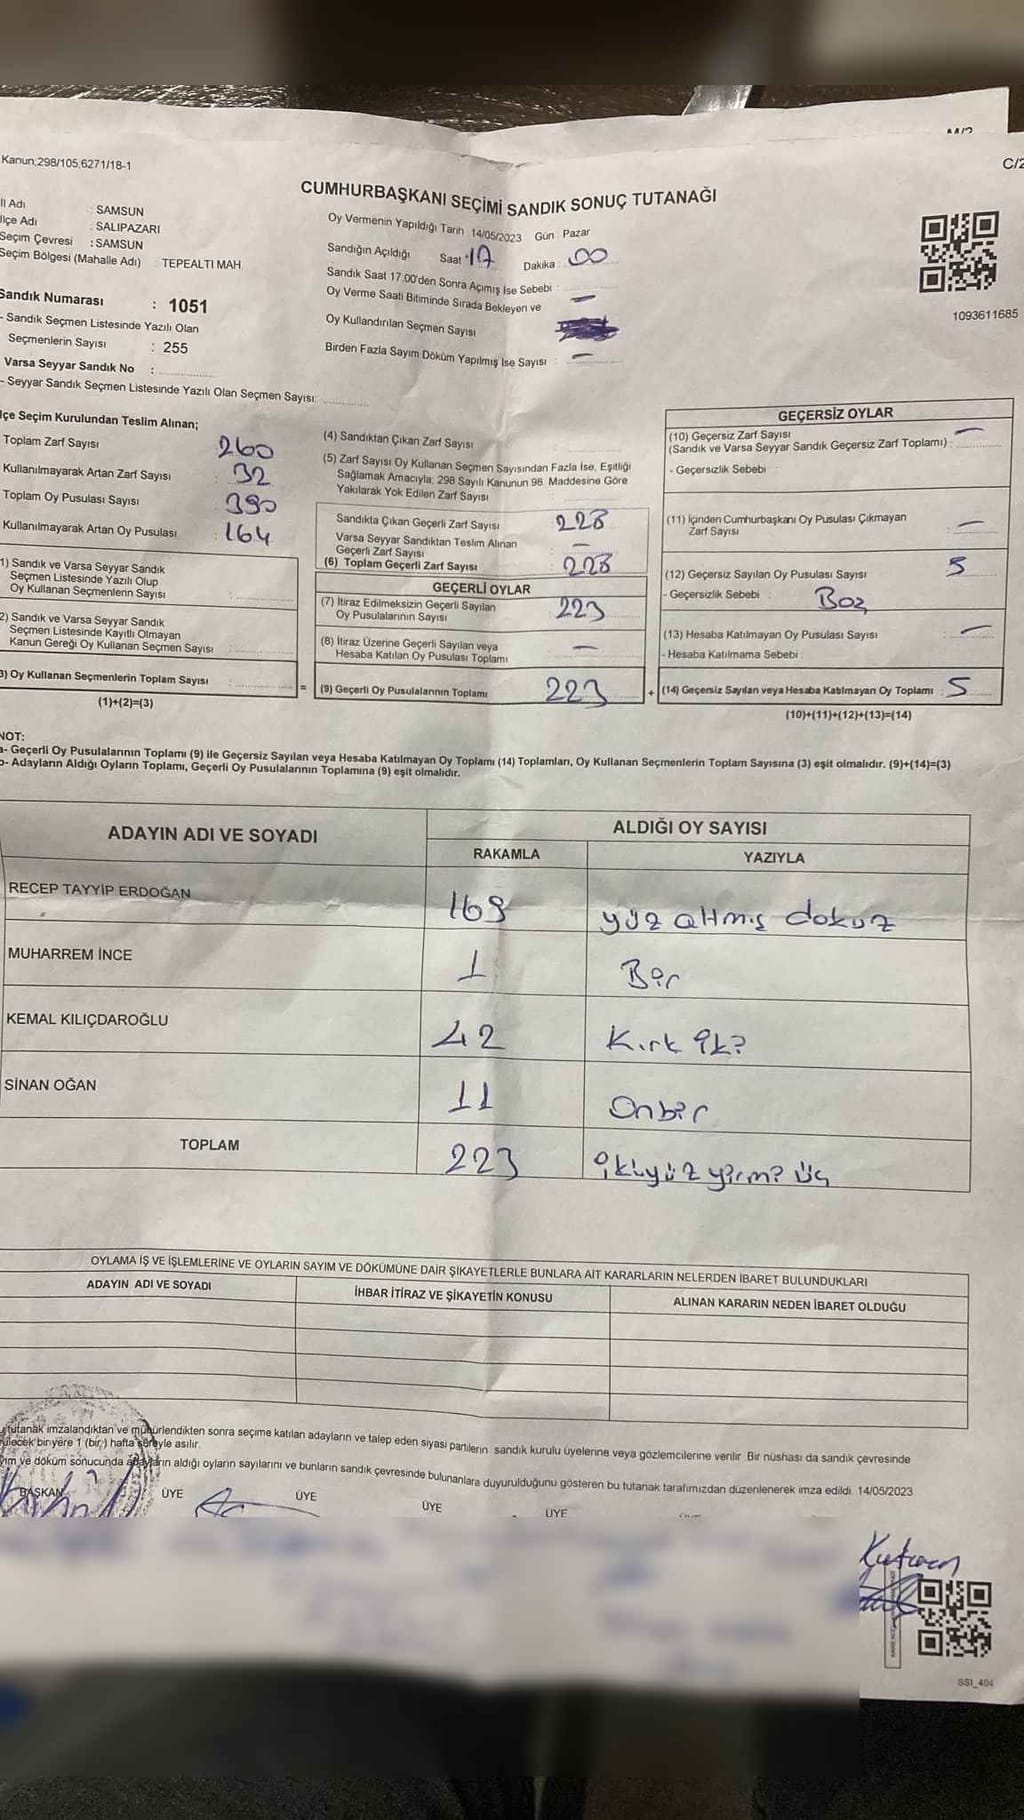 Kanun;298/105,6271/18-1
C/2
CUMHURBAŞKANI SEÇİMİ SANDIK SONUÇ TUTANAĞI
İl Adı : SAMSUN
İlçe Adı : SALIPAZARI
Seçim Çevresi : SAMSUN
Seçim Bölgesi (Mahalle Adı) TEPEALTI MAH
Sandık Numarası : 1051
- Sandık Seçmen Listesinde Yazılı Olan
Seçmenlerin Sayısı : 255
Varsa Seyyar Sandık No :
- Seyyar Sandık Seçmen Listesinde Yazılı Olan Seçmen Sayısı:
Oy Vermenin Yapıldığı Tarih 14/05/2023 Gün Pazar
Sandığın Açıldığı Saat 17 Dakika : 00
Sandık Saat 17:00'den Sonra Açımış İse Sebebi :
Oy Verme Saati Bitiminde Sırada Bekleyen ve —
Oy Kullandırılan Seçmen Sayısı
Birden Fazla Sayım Döküm Yapılmış İse Sayısı : —
1093611685
İlçe Seçim Kurulundan Teslim Alınan;
Toplam Zarf Sayısı 260
Kullanılmayarak Artan Zarf Sayısı 32
Toplam Oy Pusulası Sayısı 390
Kullanılmayarak Artan Oy Pusulası : 164
1) Sandık ve Varsa Seyyar Sandık
Seçmen Listesinde Yazılı Olup
Oy Kullanan Seçmenlerin Sayısı :
2) Sandık ve Varsa Seyyar Sandık
Seçmen Listesinde Kayıtlı Olmayan
Kanun Gereği Oy Kullanan Seçmen Sayısı :
3) Oy Kullanan Seçmenlerin Toplam Sayısı :
(1)+(2)=(3)
(4) Sandıktan Çıkan Zarf Sayısı
(5) Zarf Sayısı Oy Kullanan Seçmen Sayısından Fazla İse, Eşitliği
Sağlamak Amacıyla; 298 Sayılı Kanunun 98. Maddesine Göre
Yakılarak Yok Edilen Zarf Sayısı
Sandıkta Çıkan Geçerli Zarf Sayısı 228
Varsa Seyyar Sandıktan Teslim Alınan
Geçerli Zarf Sayısı —
(6) Toplam Geçerli Zarf Sayısı 228
GEÇERLİ OYLAR
(7) İtiraz Edilmeksizin Geçerli Sayılan
Oy Pusulalarının Sayısı 223
(8) İtiraz Üzerine Geçerli Sayılan veya
Hesaba Katılan Oy Pusulası Toplamı —
= (9) Geçerli Oy Pusulalarının Toplamı 223
GEÇERSİZ OYLAR
(10) Geçersiz Zarf Sayısı —
(Sandık ve Varsa Seyyar Sandık Geçersiz Zarf Toplamı) :
- Geçersizlik Sebebi :
(11) İçinden Cumhurbaşkanı Oy Pusulası Çıkmayan
Zarf Sayısı —
(12) Geçersiz Sayılan Oy Pusulası Sayısı 5
- Geçersizlik Sebebi : Boz
(13) Hesaba Katılmayan Oy Pusulası Sayısı —
- Hesaba Katılmama Sebebi
+ (14) Geçersiz Sayılan veya Hesaba Katılmayan Oy Toplamı : 5
(10)+(11)+(12)+(13)=(14)
NOT:
a- Geçerli Oy Pusulalarının Toplamı (9) ile Geçersiz Sayılan veya Hesaba Katılmayan Oy Toplamı (14) Toplamları, Oy Kullanan Seçmenlerin Toplam Sayısına (3) eşit olmalıdır. (9)+(14)=(3)
b- Adayların Aldığı Oyların Toplamı, Geçerli Oy Pusulalarının Toplamına (9) eşit olmalıdır.
ADAYIN ADI VE SOYADI
ALDIĞI OY SAYISI
RAKAMLA YAZIYLA
RECEP TAYYİP ERDOĞAN 169 yüz altmış dokuz
MUHARREM İNCE 1 Bir
KEMAL KILIÇDAROĞLU 42 Kırk iki
SİNAN OĞAN 11 Onbir
TOPLAM 223 ikiyüz yirmi üç
OYLAMA İŞ VE İŞLEMLERİNE VE OYLARIN SAYIM VE DÖKÜMÜNE DAİR ŞİKAYETLERLE BUNLARA AİT KARARLARIN NELERDEN İBARET BULUNDUKLARI
ADAYIN ADI VE SOYADI İHBAR İTİRAZ VE ŞİKAYETİN KONUSU ALINAN KARARIN NEDEN İBARET OLDUĞU
tutanak imzalandıktan ve mühürlendikten sonra seçime katılan adayların ve talep eden siyasi partilerin sandık kurulu üyelerine veya gözlemcilerine verilir. Bir nüshası da sandık çevresinde
bir yere 1 (bir) hafta süreyle asılır.
ve döküm sonucunda adayların aldığı oyların sayılarını ve bunların sandık çevresinde bulunanlara duyurulduğunu gösteren bu tutanak tarafımızdan düzenlenerek imza edildi. 14/05/2023
BAŞKAN ÜYE ÜYE ÜYE ÜYE
SSI_404